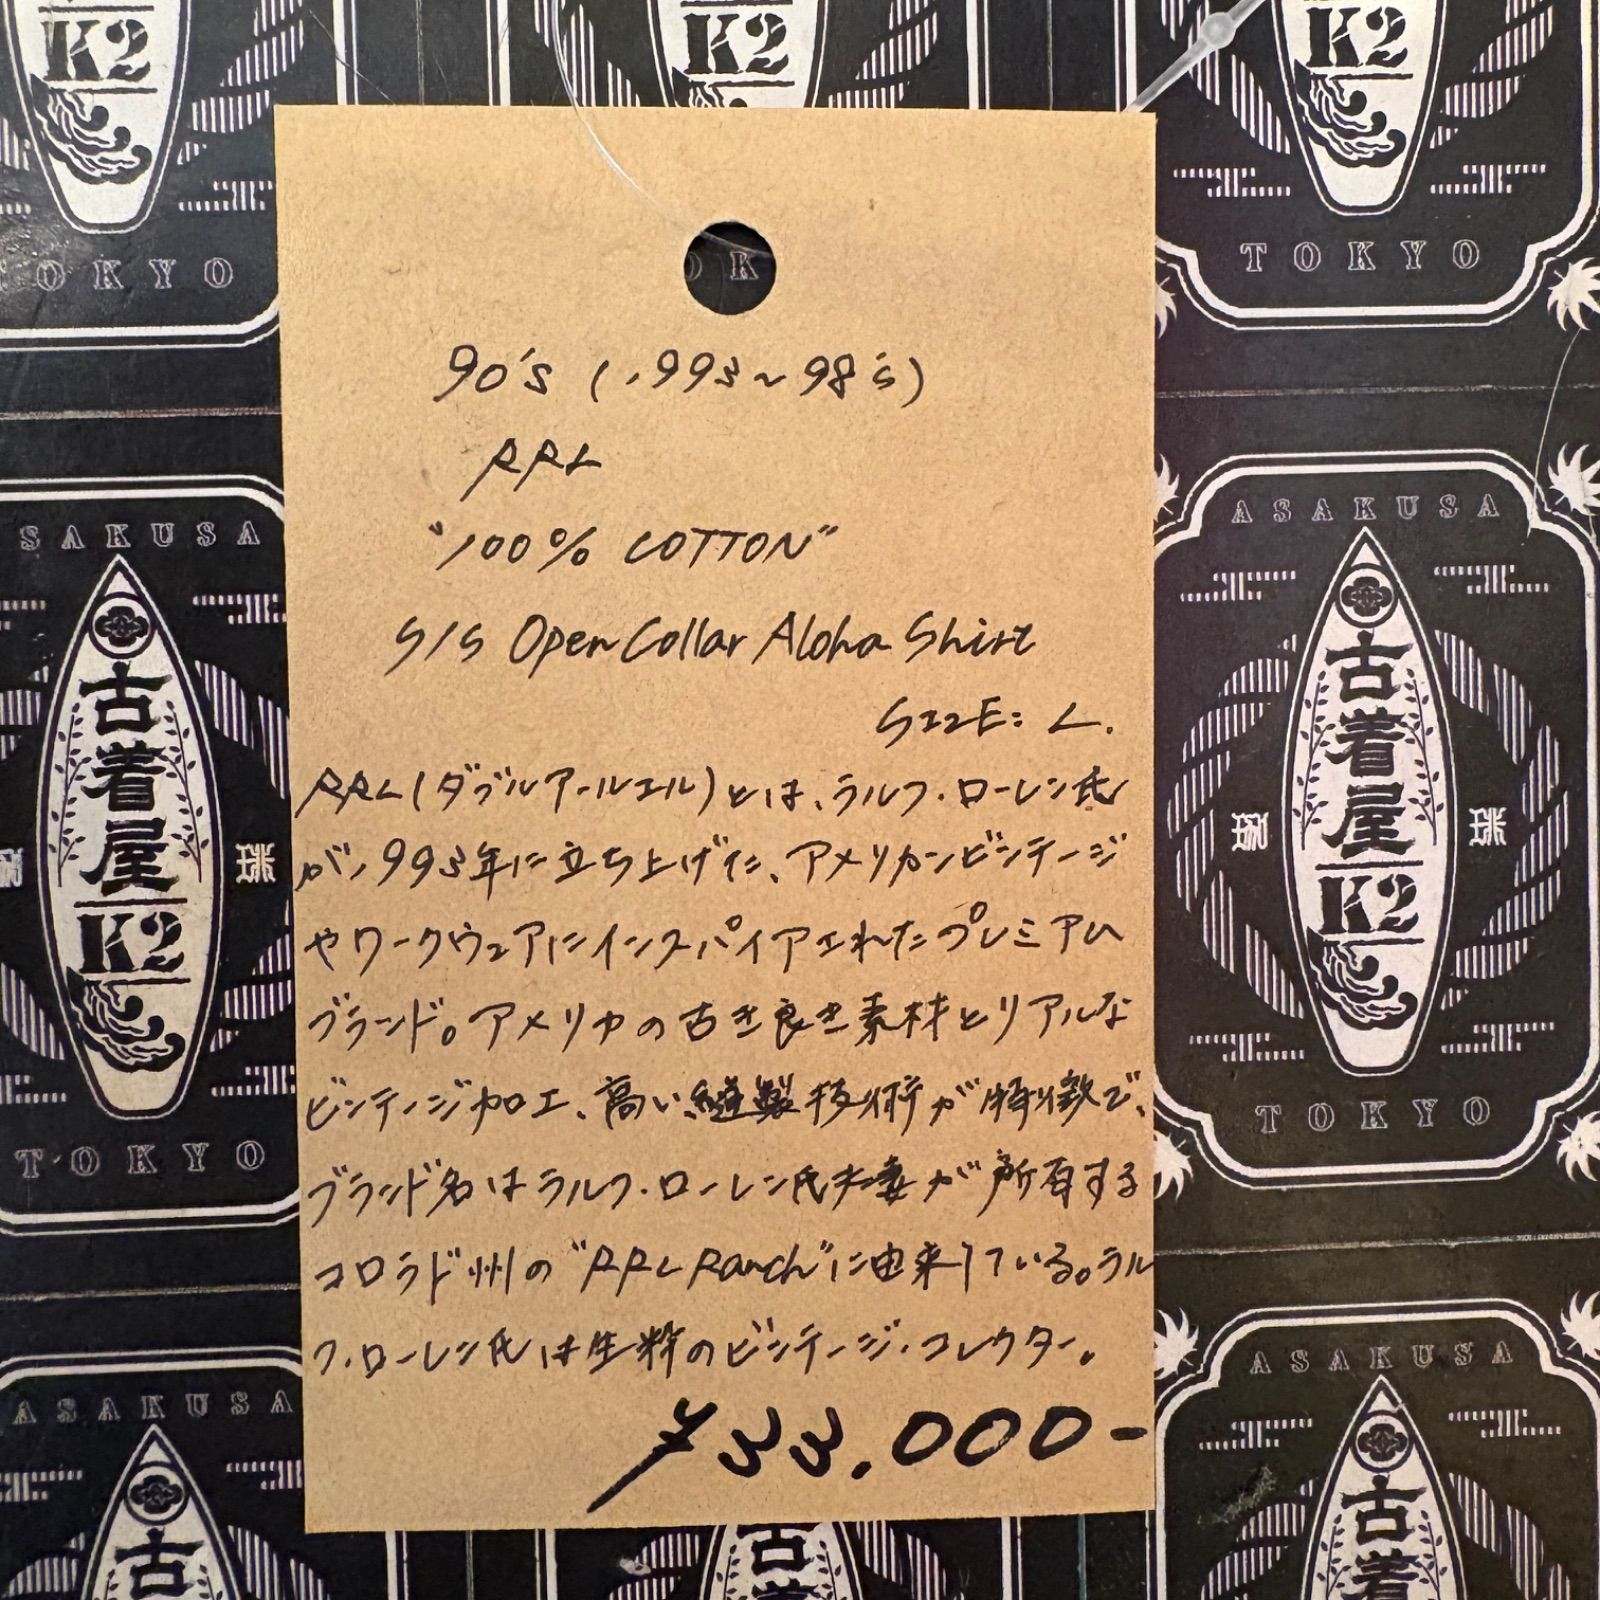 90's (1993~98's)
RRL
"100% COTTON"
S/S Open Collar Aloha Shirt
SIZE: L.
RRL(ダブルアールエル)とは、ラルフ・ローレン氏
が1993年に立ち上げた、アメリカンビンテージ
やワークウェアにインスパイアされたプレミアム
ブランド。アメリカの古き良き素材とリアルな
ビンテージ加工、高い縫製技術が特徴で、
ブランド名はラルフ・ローレン氏夫妻が所有する
コロラド州の"RRL Ranch"に由来している。ラル
フ・ローレン氏は生粋のビンテージ・コレクター。
¥33,000-
K2
K2
K2
TOKYO
OK
TOKYO
ASAKUSA
古着屋
K2
TOKYO
ASAKUSA
古着屋
K2
TOKYO
ASAKUSA
古
ASAKUSA
古着
古